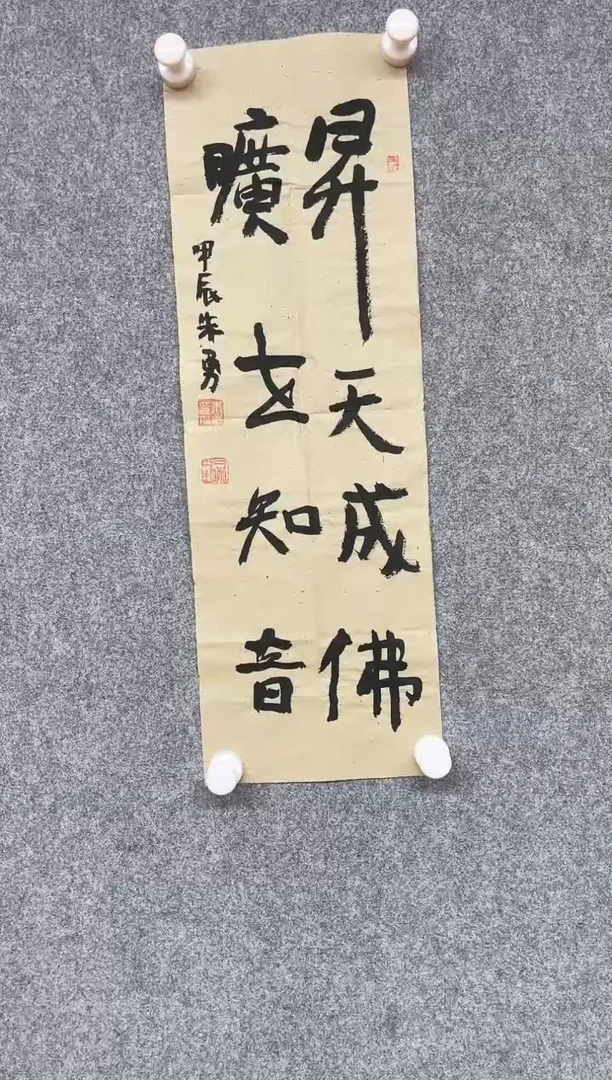 昇天成佛
曠世知音
甲辰朱勇